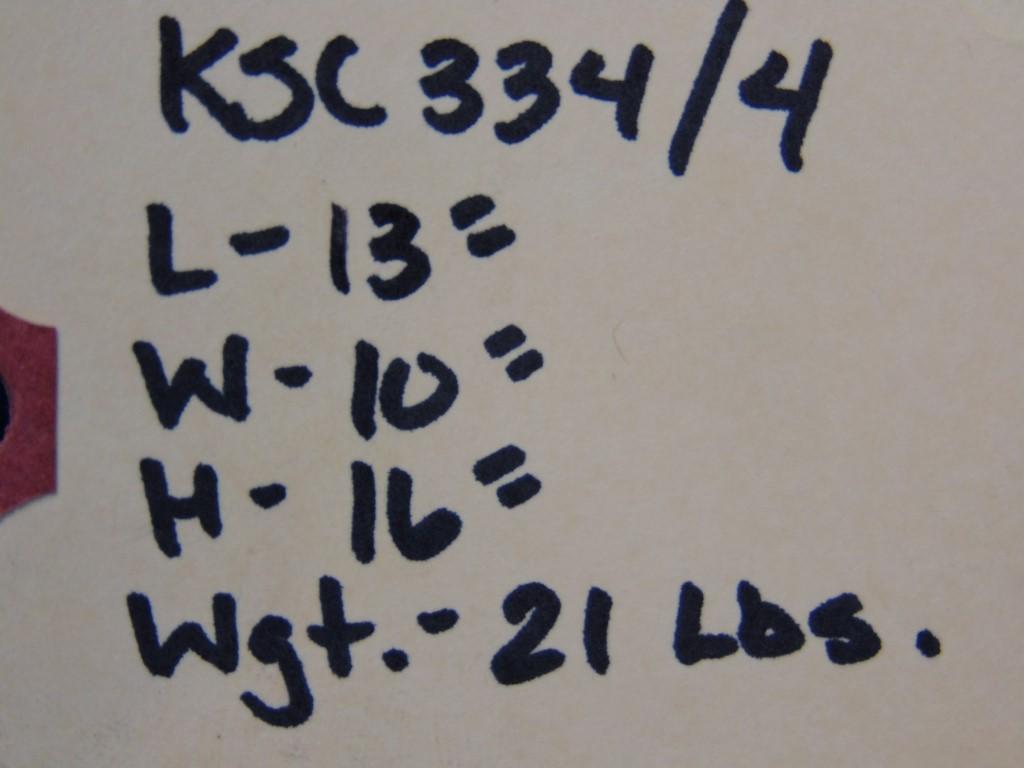 KSC 334/4
L - 13"
W - 10"
H - 16"
Wgt. - 21 Lbs.